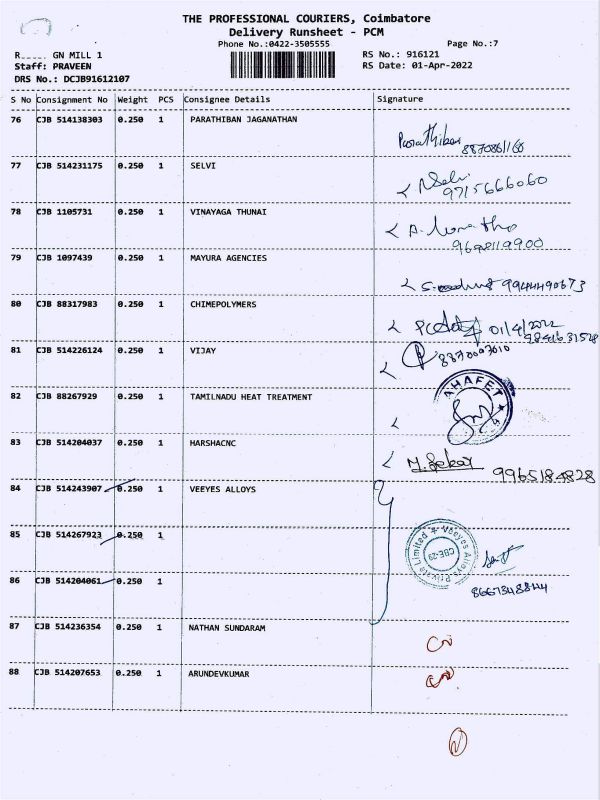 THE PROFESSIONAL COURIERS, Coimbatore
Delivery Runsheet - PCM
Phone No.:0422-3505555 Page No.:7
R..... GN MILL 1 RS No.: 916121
Staff: PRAVEEN RS Date: 01-Apr-2022
DRS No.: DCJB91612107
S No Consignment No Weight PCS Consignee Details Signature
76 CJB 514138303 0.250 1 PARATHIBAN JAGANATHAN
Parathiban 8870861166
77 CJB 514231175 0.250 1 SELVI
Selvi
9715666060
78 CJB 1105731 0.250 1 VINAYAGA THUNAI
79 CJB 1097439 0.250 1 MAYURA AGENCIES
9944490673
80 CJB 88317983 0.250 1 CHIMEPOLYMERS
01/4/2022
9841631528
81 CJB 514226124 0.250 1 VIJAY
82 CJB 88267929 0.250 1 TAMILNADU HEAT TREATMENT
AHAFET
83 CJB 514204037 0.250 1 HARSHACNC
M. Sekar 9965184828
84 CJB 514243907 0.250 1 VEEYES ALLOYS
85 CJB 514267923 0.250 1
Veeyes Alloys Private Limited
CBE-29
86 CJB 514204061 0.250 1
8667348844
87 CJB 514236354 0.250 1 NATHAN SUNDARAM
88 CJB 514207653 0.250 1 ARUNDEVKUMAR